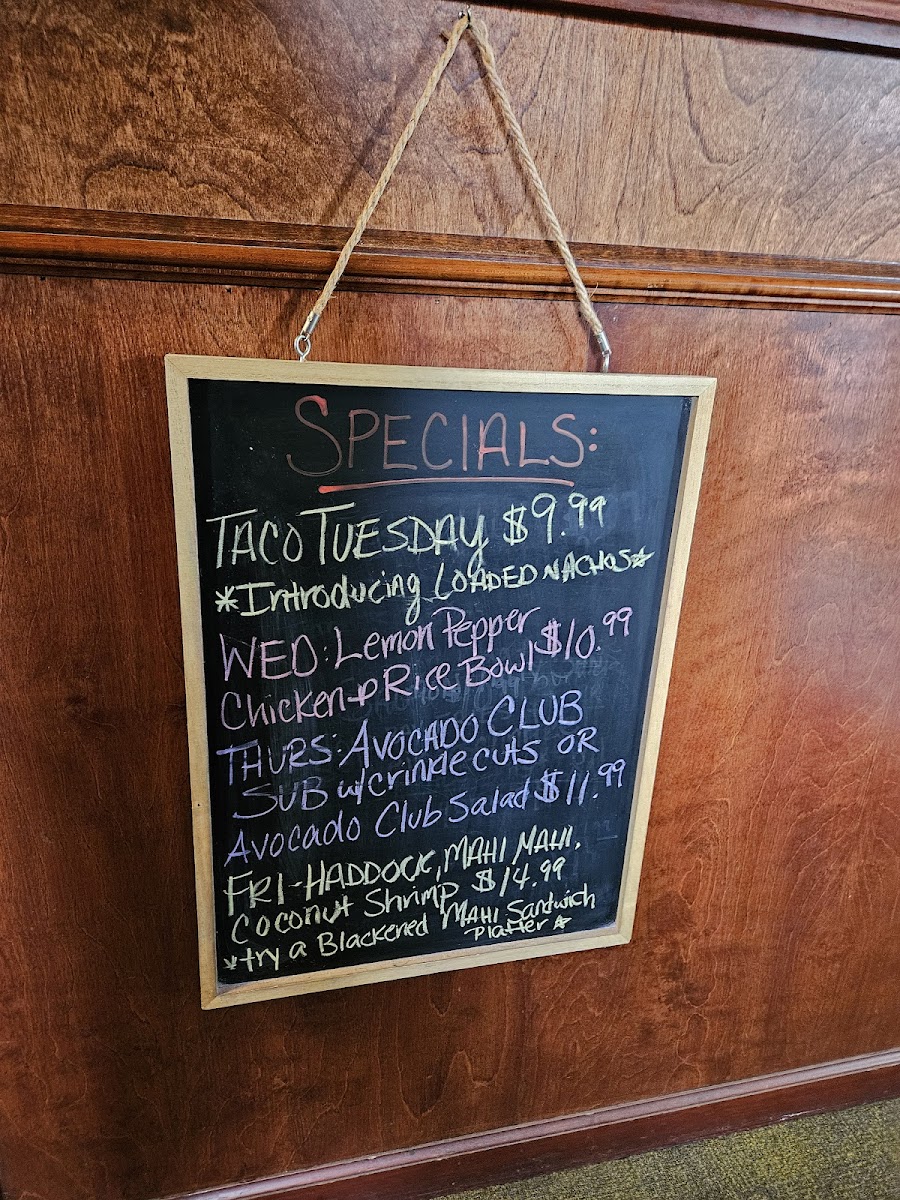 SPECIALS:
TACO TUESDAY $9.99
*Introducing LOADED NACHOS☆
WED: Lemon Pepper
Chicken + Rice Bowl $10.99
THURS: AVOCADO CLUB
SUB w/crinkle cuts OR
Avocado Club Salad $11.99
FRI-HADDOCK, MAHI MAHI,
Coconut Shrimp $14.99
*try a Blackened MAHI Sandwich
Platter ☆